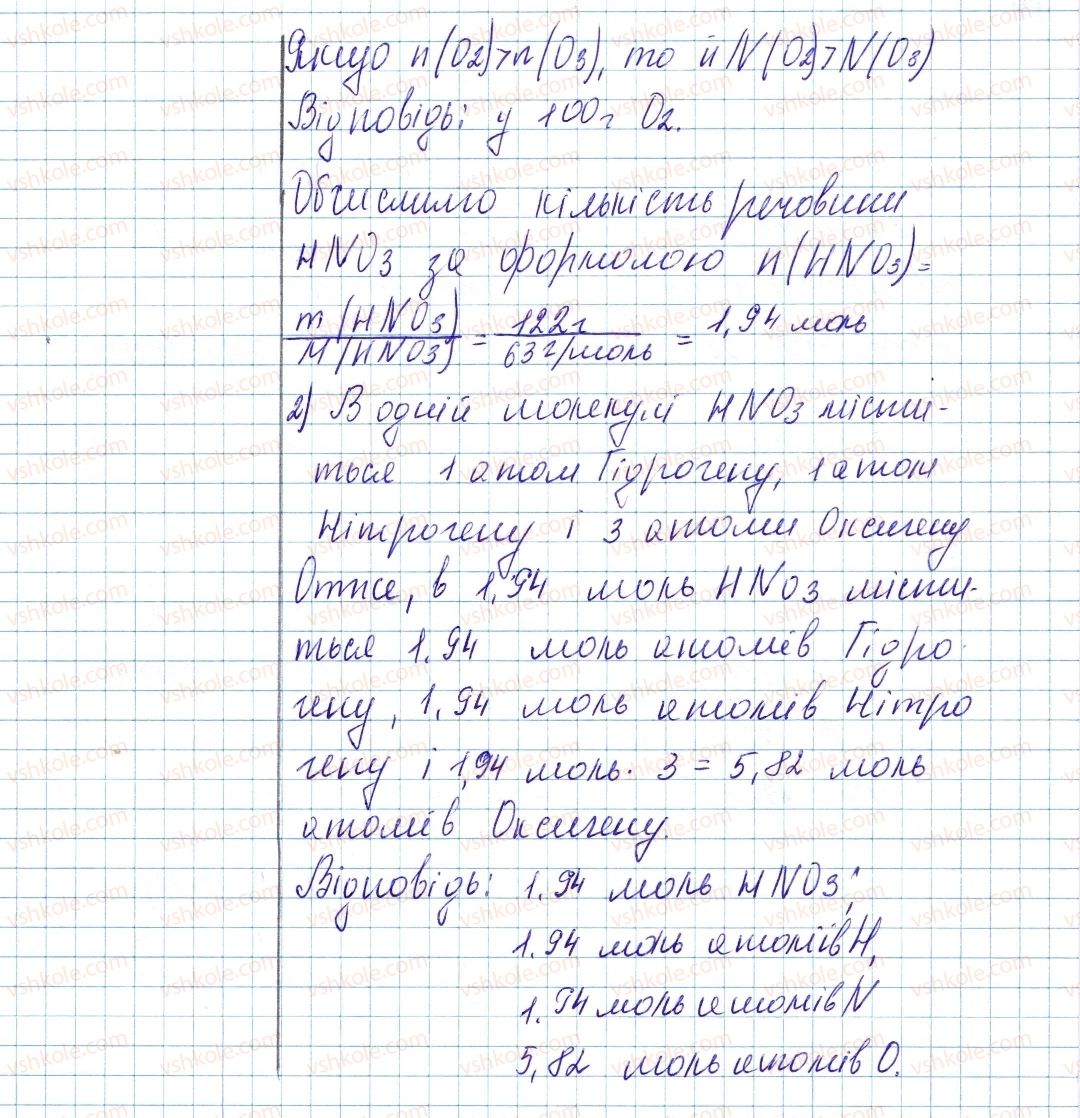 Якщо n(O2)>n(O3), то й N(O2)>N(O3)
Відповідь: у 100г O2.
Обчислимо кількість речовини
HNO3 за формолою n(HNO3)=
m(HNO3)/M(HNO3) = 122г/63г/моль = 1,94 моль
2) В одній молекулі HNO3 місти-
ться 1 атом Гідрогену, 1 атом
Нітрогену і 3 атоми Оксигену
Отже, в 1,94 моль HNO3 місти-
ться 1.94 моль атомів Гідро
гену, 1,94 моль атомів Нітро
гену і 1,94 моль · 3 = 5,82 моль
атомів Оксигену.
Відповідь: 1.94 моль HNO3;
1.94 моль атомів H,
1.94 моль атомів N
5,82 моль атомів O.